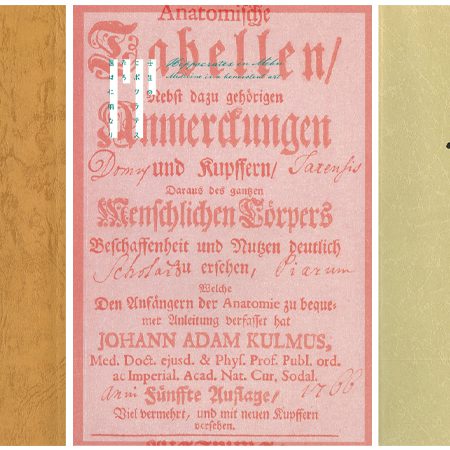 Anatomische
Tabellen/
Hippocrates en Mebu
Medicine is a benevolent art
Nebst dazu gehörigen
Anmerckungen
Domus und Kupffern/ Tatensis
Daraus des gantzen
Menschlichen Cörpers
Beschaffenheit und Nutzen deutlich
Scholar zu ersehen, Piarum
Welche
Den Anfängern der Anatomie zu beque-
mer Anleitung verfasset hat
JOHANN ADAM KULMUS,
Med. Doct. ejusd. & Phys. Prof. Publ. ord.
ac Imperial. Acad. Nat. Cur. Sodal.
Anni Fünffte Auflage/ 1766
Viel vermehrt, und mit neuen Kupffern
versehen.